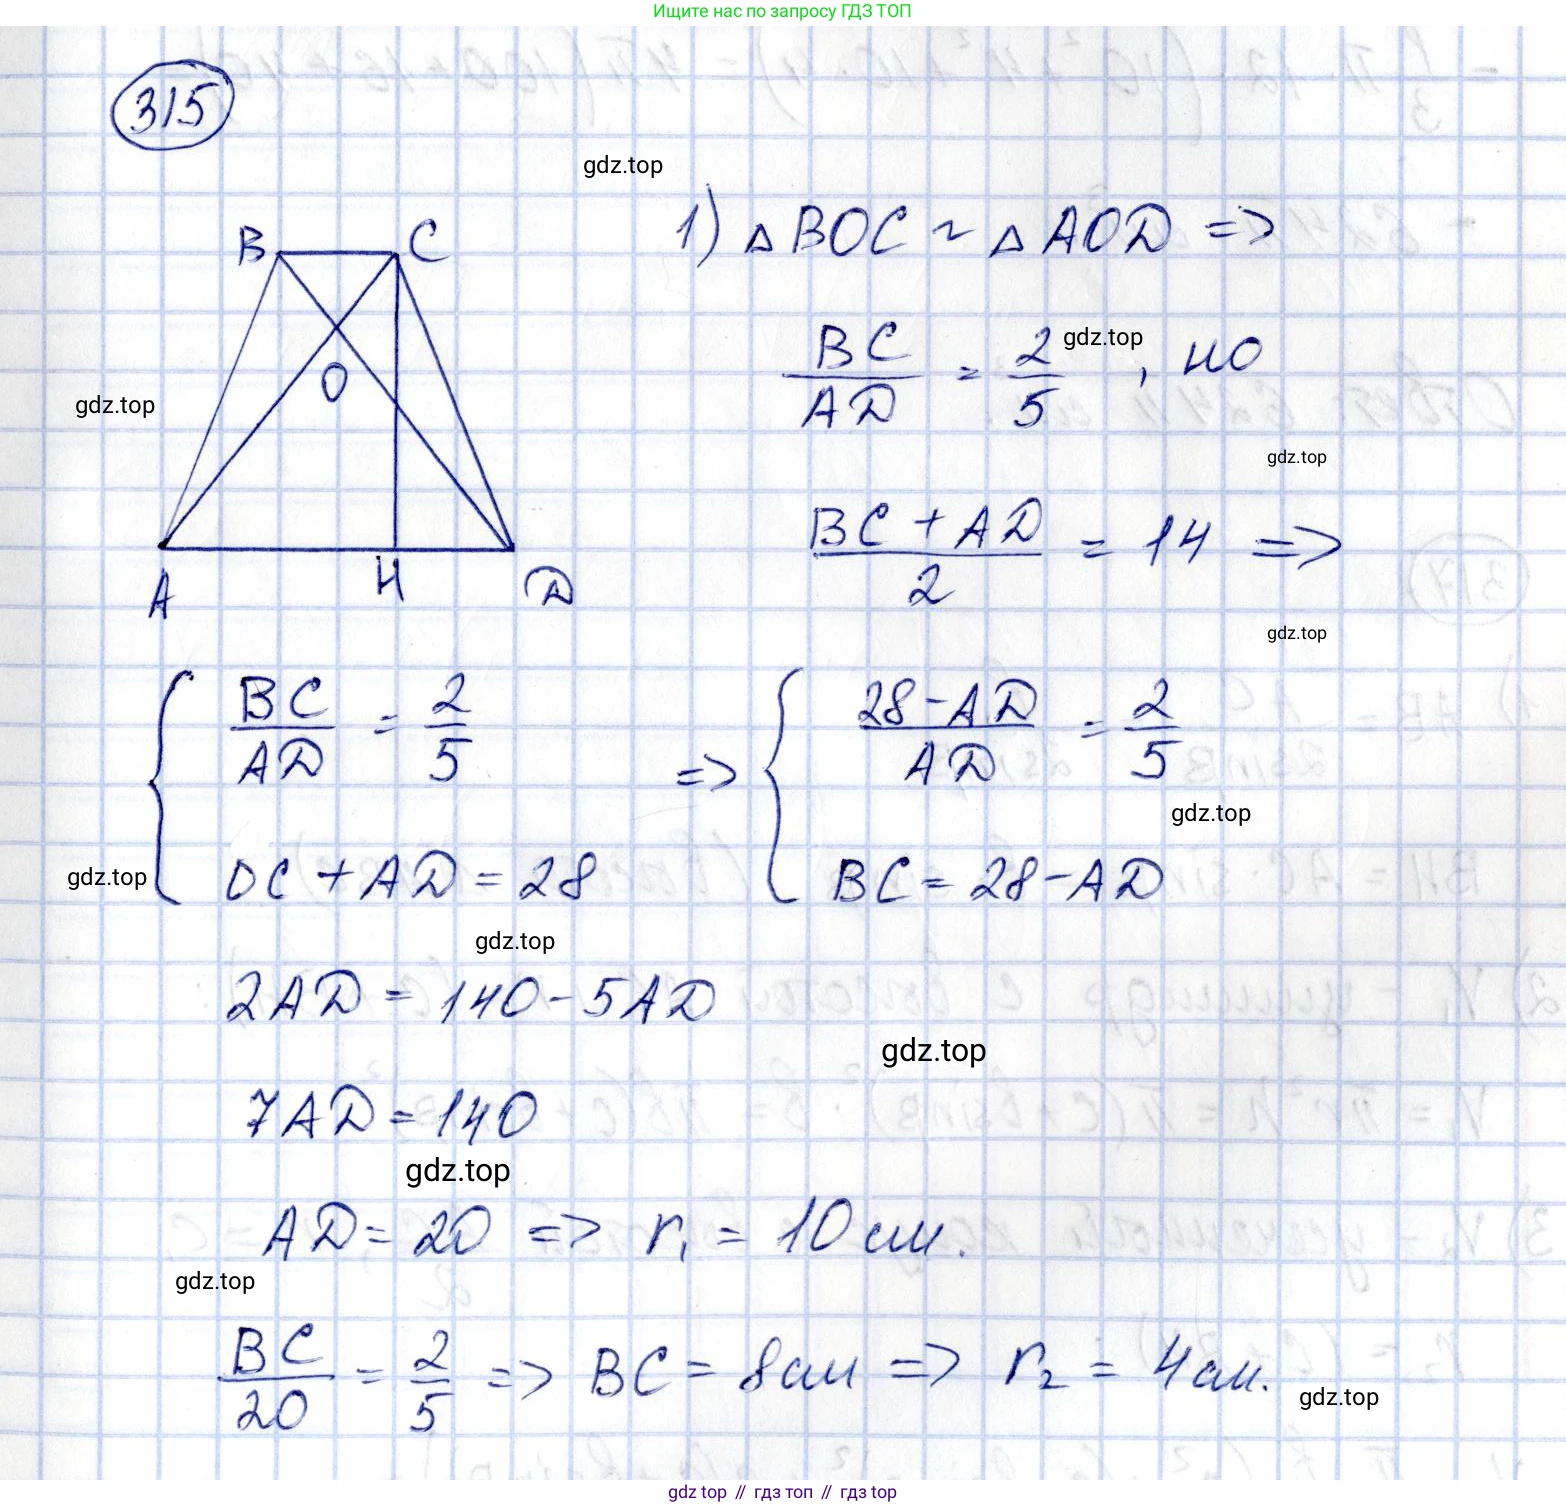 Ищите нас по запросу ГДЗ ТОП
315
gdz.top
B C
1) △BOC ~ △AOD =>
BC/AD = 2/5 , но
gdz.top
O
gdz.top
gdz.top
(BC + AD)/2 = 14 =>
A H D
gdz.top
{ BC/AD = 2/5 => { (28-AD)/AD = 2/5
gdz.top
DC + AD = 28 BC = 28-AD
gdz.top
gdz.top
2AD = 140-5AD
gdz.top
7AD = 140
gdz.top
AD = 20 => r₁ = 10 см.
gdz.top
BC/20 = 2/5 => BC = 8см => r₂ = 4 см.
gdz.top
gdz top // гдз топ // гдз top